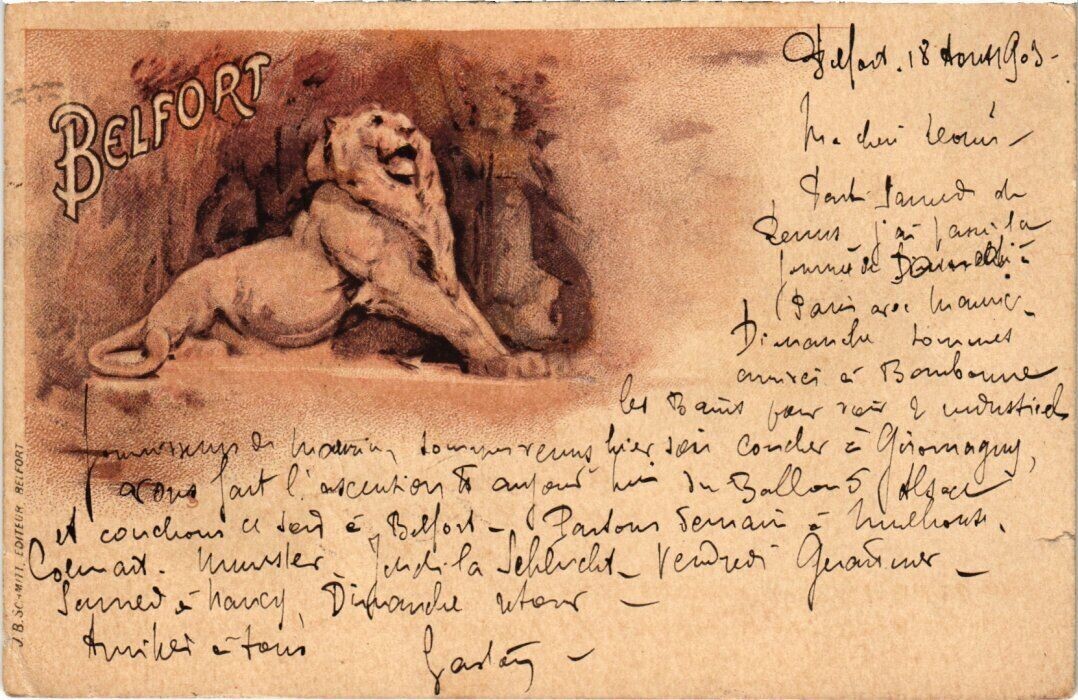 BELFORT
Belfort. 18 Aout 1903-
Mon cher Louis -
Parti Samedi de
j'ai passé la
journée de à
Paris avec Maurice
Dimanche sommes
arrivés à Bourbonne
les Bains pour voir 2 industriels
fournisseurs de Maurice, sommes venus hier soir coucher à Giromagny,
avons fait l'ascention aujourd'hui du Ballon d'Alsace
et couchons ce soir à Belfort - Partons demain à Mulhouse.
Colmar. Munster. Jeudi la Schlucht - Vendredi Gerardmer -
Samedi à Nancy, Dimanche retour -
Amitiés à tous
Gaston -
J.B. SCHMITT, EDITEUR, BELFORT